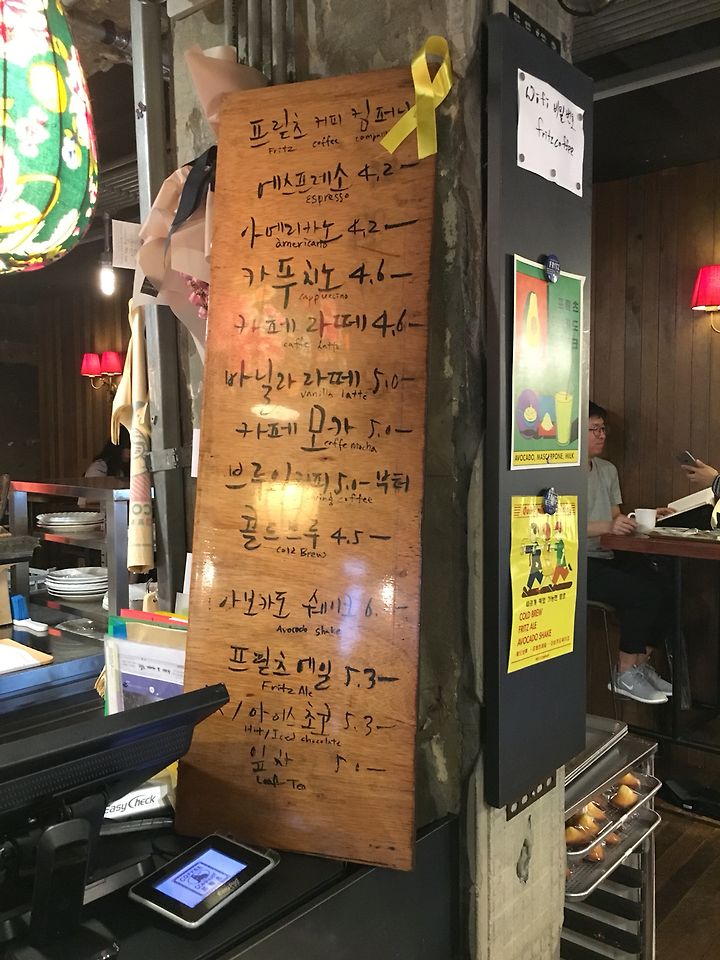 프릳츠 커피 컴퍼니
Fritz coffee company
에스프레소 4,2—
espresso
아메리카노 4,2—
americano
카푸치노 4,6—
cappuccino
카페 라떼 4,6—
caffe latte
바닐라 라떼 5.0—
vanilla latte
카페 모카 5.0—
caffe mocha
브루잉커피 5.0—부터
coffee
콜드브루 4.5—
Cold Brew
아보카도 쉐이크 6.
Avocado shake
프릳츠 에일 5.3—
Fritz Ale
/아이스 초코 5.3—
Hot/Iced chocolate
잎차 5.0—
Leaf Tea
Wifi 비밀번호
fritzcoffee
FRITZ
AVOCADO, MASCARPONE, MILK
COLD BREW
FRITZ ALE
AVOCADO SHAKE
easy Check